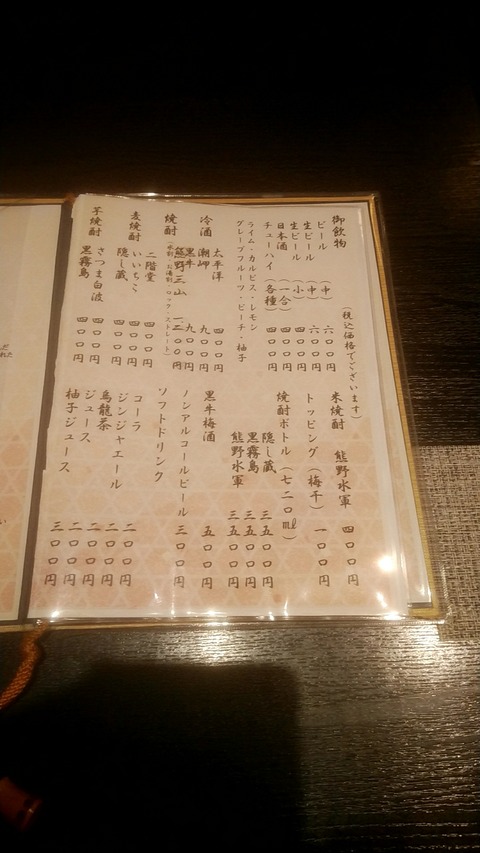 御飲物 (税込価格でございます)
ビール (中) 六〇〇円
生ビール (中) 六〇〇円
生ビール (小) 四〇〇円
日本酒 (一合) 四〇〇円
チューハイ (各種) 四〇〇円
ライム・カルピス・レモン
グレープフルーツ・ピーチ・柚子
冷酒 太平洋 四〇〇円
潮岬 九〇〇円
黒牛 九〇〇円
熊野三山 一二〇〇円
焼酎 (水割・お湯割・ロック・ストレート)
麦焼酎 二階堂 四〇〇円
いいちこ 四〇〇円
隠し蔵 四〇〇円
芋焼酎 さつま白波 四〇〇円
黒霧島 四〇〇円
米焼酎 熊野水軍 四〇〇円
トッピング (梅干) 一〇〇円
焼酎ボトル (七二〇ml)
隠し蔵 三五〇〇円
黒霧島 三五〇〇円
熊野水軍 三五〇〇円
黒牛梅酒 五〇〇円
ノンアルコールビール 三〇〇円
ソフトドリンク
コーラ 二〇〇円
ジンジャエール 二〇〇円
烏龍茶 二〇〇円
ジュース 二〇〇円
柚子ジュース 三〇〇円